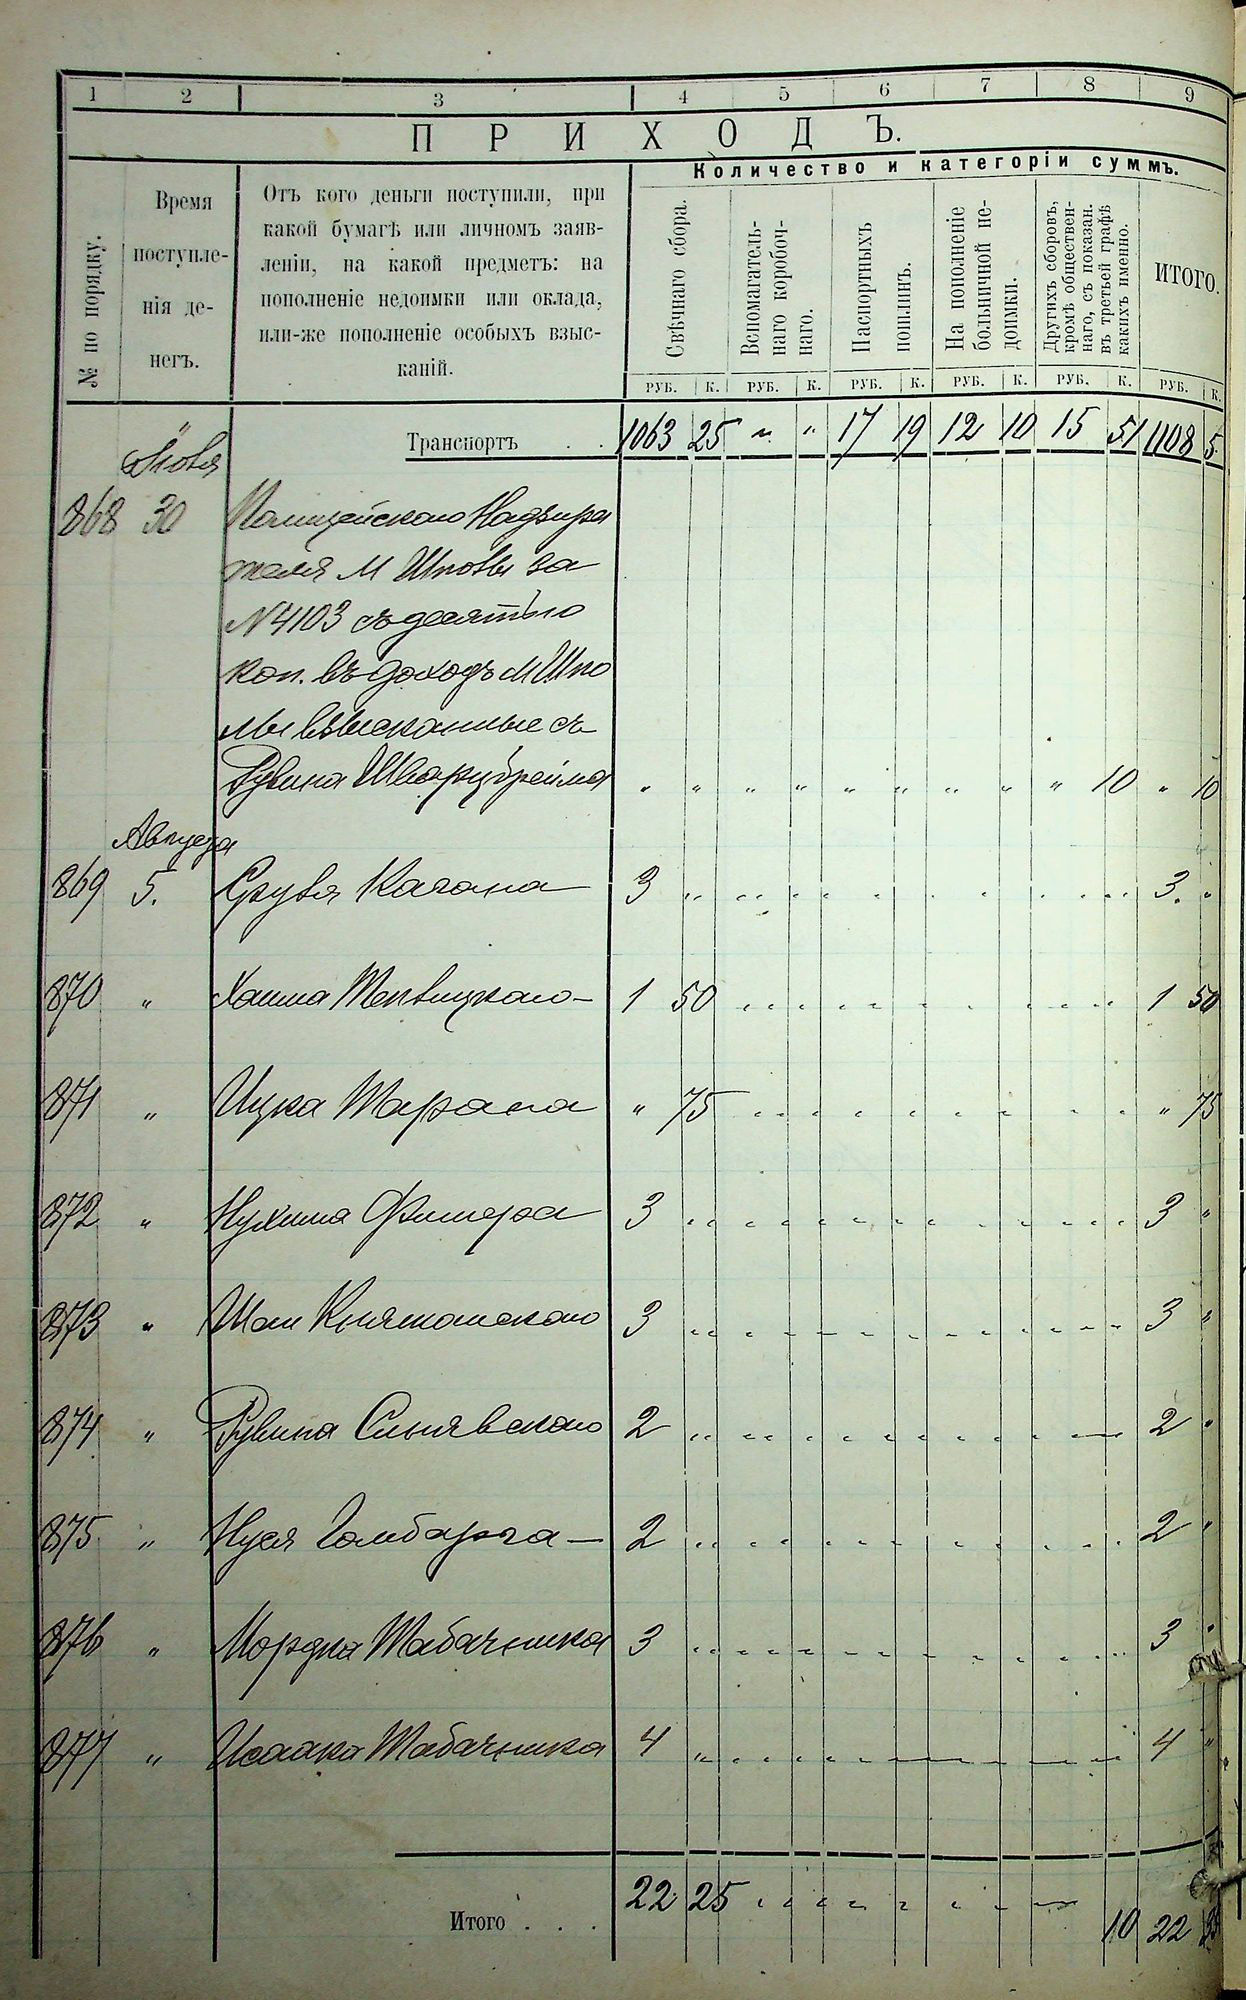 1 2 3 4 5 6 7 8 9
ПРИХОДЪ.
№ по порядку.
Время
поступле-
нія де-
негъ.
Отъ кого деньги поступили, при
какой бумагѣ или личномъ заяв-
леніи, на какой предметъ: на
пополненіе недоимки или оклада,
или-же пополненіе особыхъ взыс-
каній.
Количество и категоріи суммъ.
Свѣчнаго сбора.
Вспомагатель-
наго коробоч-
наго.
Паспортныхъ
пошлинъ.
На пополненіе
больничной не-
доимки.
Другихъ сборовъ,
кромѣ обществен-
наго, съ показан.
въ третьей графѣ
какихъ именно.
ИТОГО.
РУБ. К. РУБ. К. РУБ. К. РУБ. К. РУБ. К. РУБ. К.
Транспортъ . . 1063 25 " " 17 19 12 10 15 51 1108 5
Іюля
868 30 Полицейскаго Надзира
теля М Шполы за
N 4103 съ десятью
коп. въ доходъ М Шпо
лы взысканные съ
Рувина Шварцбрейма " " " " " " " " " 10 " 10
Августа
869 5. Сруля Кагана 3 " 3. "
870 " Хаима 1 50 1 50
871 " Ицка Тарана " 75 " 75
872 " Нухима Фишера 3 " 3 "
873 " Шаи 3 " 3 "
874 " Рувина Синявскаго 2 " 2 "
875 " Нуся Гомбарга — 2 " 2 "
876 " Мордка Табачника 3 " 3 "
877 " Исаака Табачника 4 " 4 "
Итого . . . 22 25 10 22 35